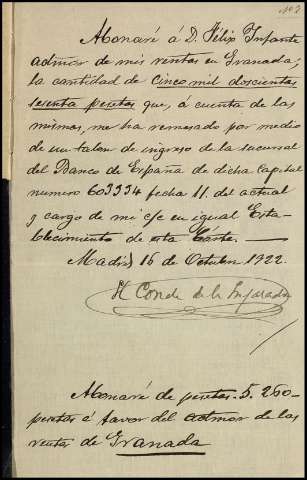 Abonaré á D. Félix Infante
admor de mis rentas en Granada,
la cantidad de cinco mil doscientas
sesenta pesetas que, á cuenta de las
mismas, me ha remesado por medio
de un talon de ingreso de la sucursal
del Banco de España de dicha capital
numero 603334 fecha 11. del actual
y cargo de mi c/c en igual Esta-
blecimiento de esta Córte.
Madrid 16 de Octubre 1922.
El Conde de la
Abonaré de pesetas. 5.260-
pesetas á favor del admor de las
rentas de Granada